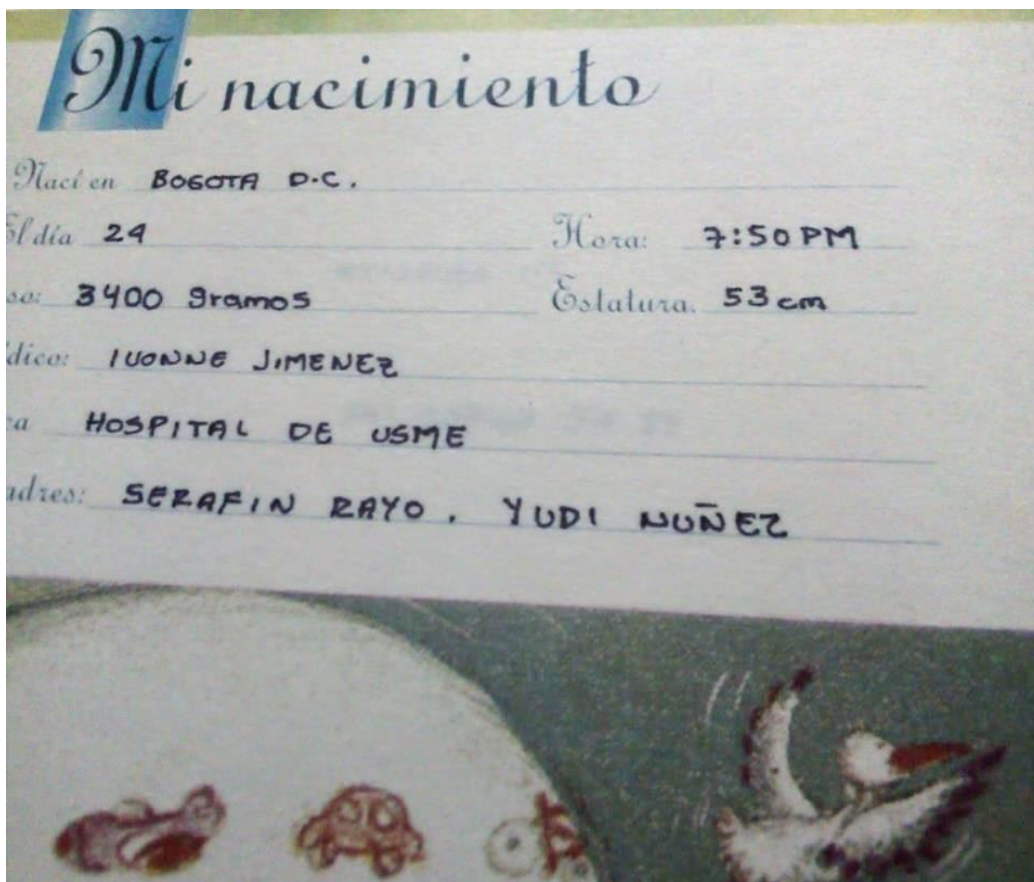 Mi nacimiento
Nací en BOGOTA D.C.
El día 24 Hora: 7:50 PM
so: 3400 gramos Estatura. 53 cm
dico: IVONNE JIMENEZ
ca HOSPITAL DE USME
adres: SERAFIN RAYO. YUDI NUÑEZ